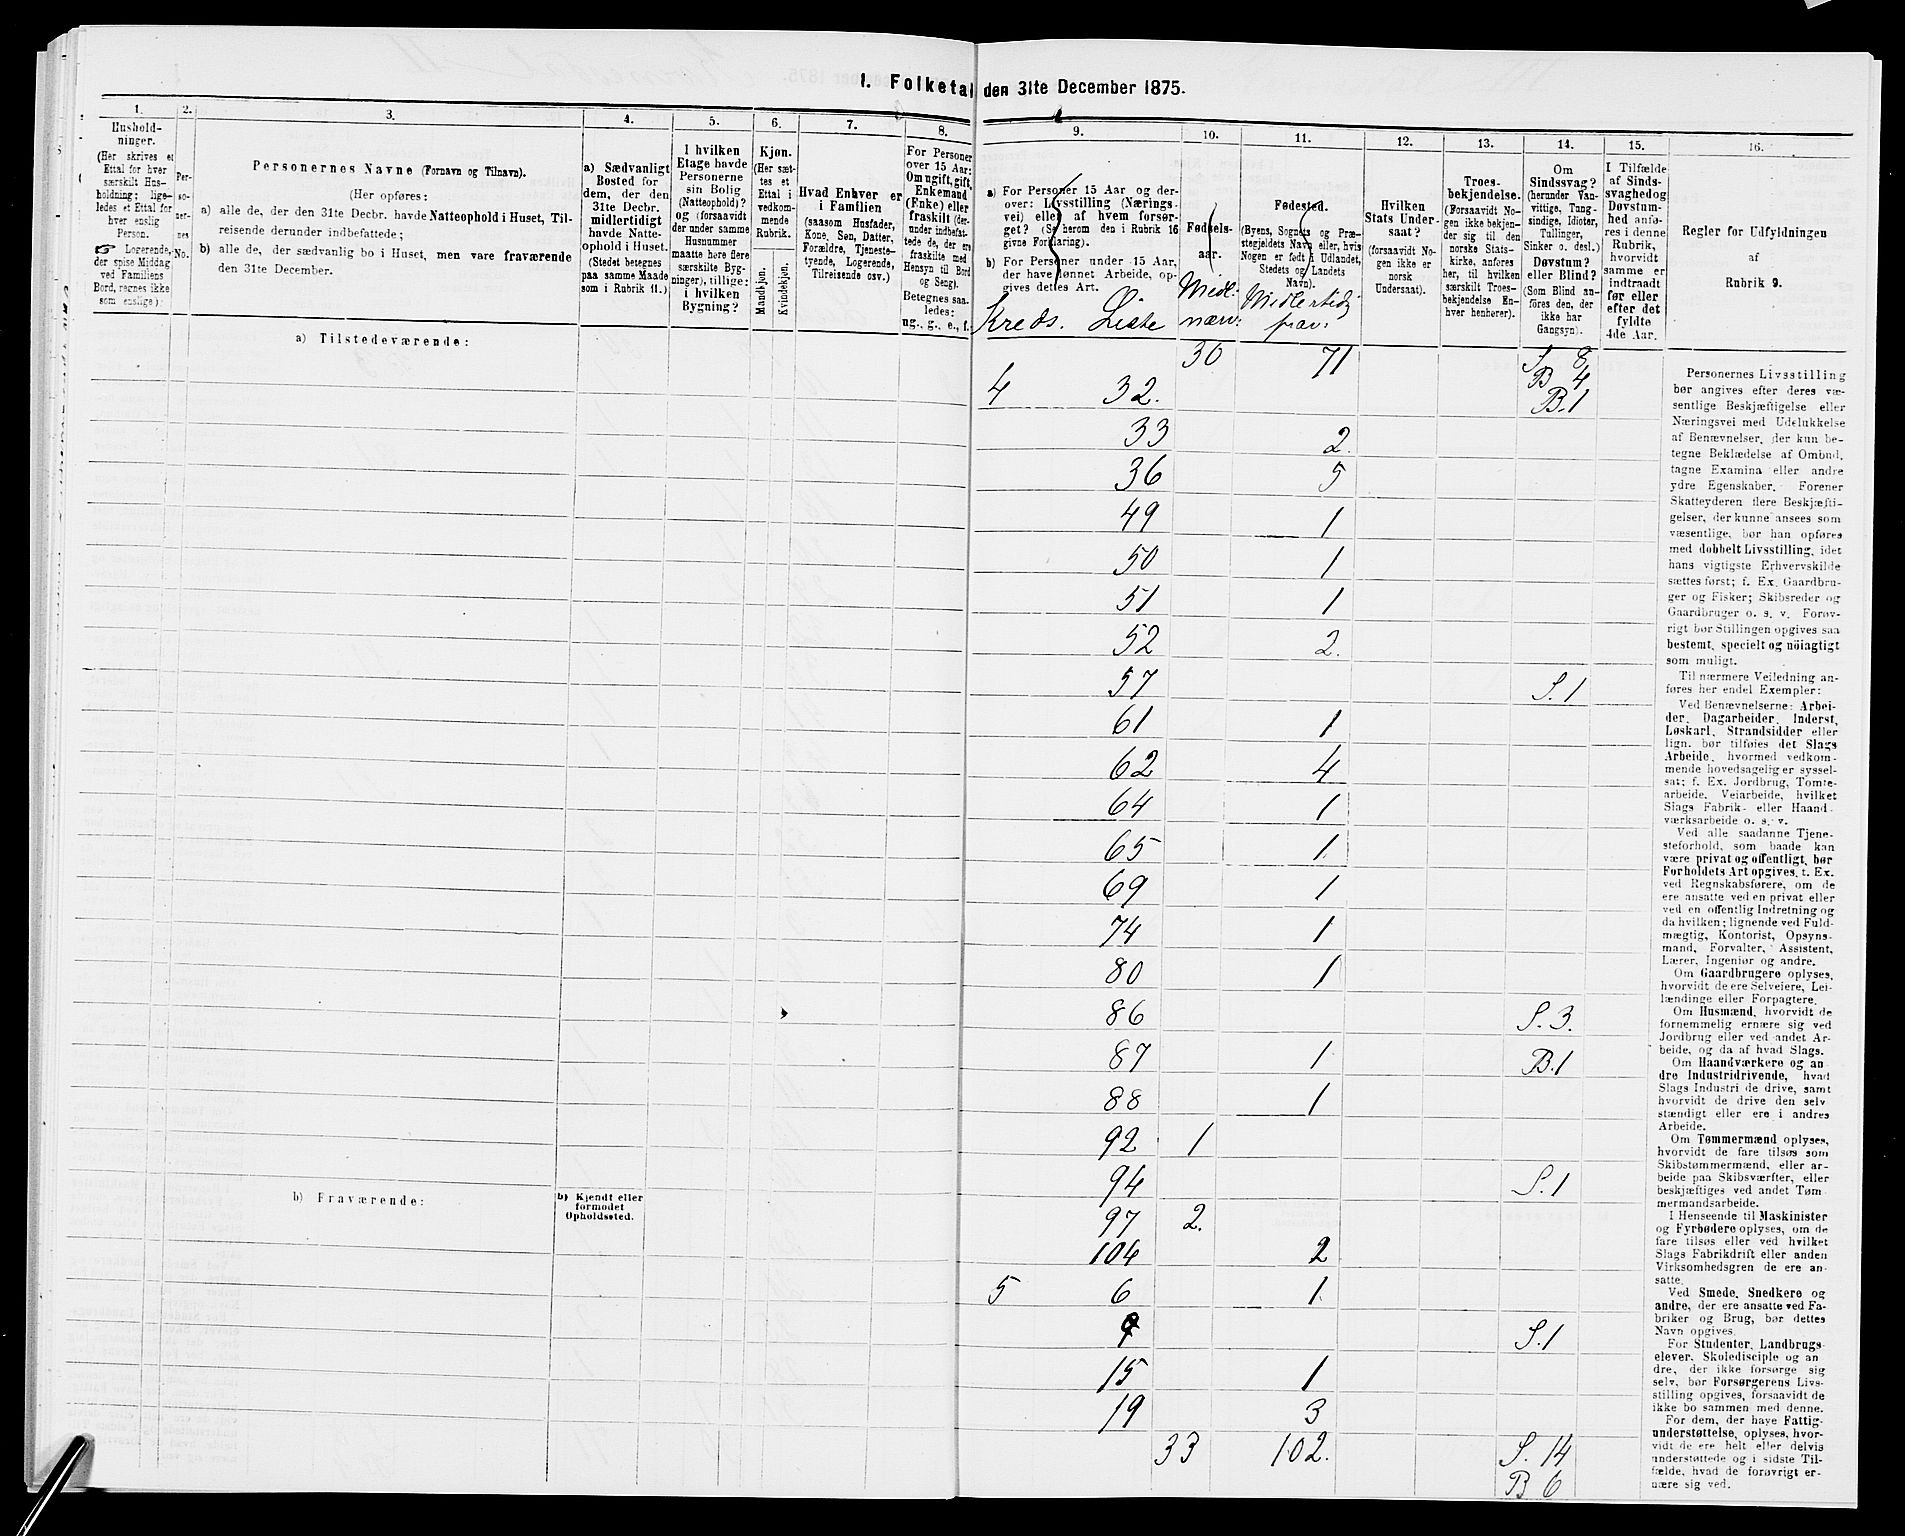 1. Folketal den 31te December 1875.
1.
2.
3.
4.
5.
6.
7.
8.
9.
10.
11.
12.
13.
14.
15.
16.
Hushold-
ninger.
(Her skrives et
Ettal for hver
særskilt Hus-
holdning; lige-
ledes et Ettal for
hver enslig
Person.
☞ Logerende,
der spise Middag
ved Familiens
Bord, regnes ikke
som enslige).
Per-
so-
ner-
nes
No.
Personernes Navne (Fornavn og Tilnavn).
(Her opføres:
a) alle de, der den 31te Decbr. havde Natteophold i Huset, Til-
reisende derunder indbefattede;
b) alle de, der sædvanlig bo i Huset, men vare fraværende
den 31te December.
a) Sædvanligt
Bosted for
dem, der den
31te Decbr.
midlertidigt
havde Natte-
ophold i Huset.
(Stedet betegnes
paa samme Maade
som i Rubrik 11.)
I hvilken
Etage havde
Personerne
sin Bolig
(Natteophold)?
og (forsaavidt
der under samme
Husnummer
maatte høre flere
særskilte Byg-
ninger), tillige:
i hvilken
Bygning?
Kjøn.
(Her sæt-
tes et
Ettal i
vedkom-
mende
Rubrik.
Mandkjøn.
Kvindekjøn.
Hvad Enhver er
i Familien
(saasom Husfader,
Kone, Søn, Datter,
Forældre, Tjeneste-
tyende, Logerende,
Tilreisende osv.)
For Personer
over 15 Aar:
Om ugift, gift,
Enkemand
(Enke) eller
fraskilt (der-
under indbefat-
tede de, der ere
fraskilte med
Hensyn til Bord
og Seng).
Betegnes saa-
ledes:
ug., g., e., f.
a) For Personer 15 Aar og der-
over: Livsstilling (Nærings-
vei) eller af hvem forsør-
get? (Se herom den i Rubrik 16
givne Forklaring).
b) For Personer under 15 Aar,
der have lønnet Arbeide, op-
gives dettes Art.
Kreds. Liste
Fødsels-
aar.
Midl:
nærv:
Fødested.
(Byens, Sognets og Præ-
stegjeldets Navn eller, hvis
Nogen er født i Udlandet,
Stedets og Landets
Navn).
Midlertidig
frav:
Hvilken
Stats Under-
saat?
(forsaavidt No-
gen ikke er
norsk
Undersaat).
Troes-
bekjendelse.
(Forsaavidt No-
gen ikke bekjen-
der sig til den
norske Stats-
kirke, anføres
her, til hvilken
særskilt Troes-
bekjendelse En-
hver henhører).
Om
Sindssvag?
(herunder Van-
vittige, Tung-
sindige, Idioter,
Tullinger,
Sinker o. desl.)
Døvstum?
eller Blind?
(Som Blind an-
føres den, der
ikke har
Gangsyn).
I Tilfælde
af Sinds-
svaghed og
Døvstum-
hed anfø-
res i denne
Rubrik,
hvorvidt
samme er
indtraadt
før eller
efter det
fyldte
4de Aar.
Regler for Udfyldningen
af
Rubrik 9.
a) Tilstedeværende:
30 71 S 8
B 4
4 32. B.1
33 2.
36 5
49 1
50 1
51 1
52 2.
57 S.1
61 1
62 4
64 1
65 1
69 1
74 1
80 1
86 S.3.
87 1 B.1
88 1
92 1
94 S.1
97 2.
104 2
5 6 1.
9 S.1
15 1
19 3
33 102. S. 14
B 6
b) Fraværende:
b) Kjendt eller
formodet
Opholdssted.
Personernes Livsstilling
bør angives efter deres væ-
sentlige Beskjæftigelse eller
Næringsvei med Udelukkelse
af Benævnelser, der kun be-
tegne Beklædelse af Ombud,
tagne Examina eller andre
ydre Egenskaber. Forener
Skatteyderen flere Beskjæfti-
gelser, der kunne ansees som
væsentlige, bør han opføres
med dobbelt Livsstilling, idet
hans vigtigste Erhvervskilde
sættes først; f. Ex. Gaardbru-
ger og Fisker; Skibsreder og
Gaardbruger o. s. v. Forøv-
rigt bør Stillingen opgives saa
bestemt, specielt og nöiagtigt
som muligt.
Til nærmere Veiledning an-
føres her endel Exempler:
Ved Benævnelserne: Arbei-
der, Dagarbeider, Inderst,
Løskarl, Strandsidder eller
lign. bør tilføies det Slags
Arbeide, hvormed vedkom-
mende hovedsagelig er syssel-
sat; f. Ex. Jordbrug, Tomte-
arbeide, Veiarbeide, hvilket
Slags Fabrik- eller Haand-
værksarbeide o. s. v.
Ved alle saadanne Tjene-
steforhold, som baade kan
være privat og offentligt, bør
Forholdets Art opgives, t. Ex.
ved Regnskabsførere, om de
ere ansatte ved en privat eller
ved en offentlig Indretning og
da hvilken; lignende ved Fuld-
mægtig, Kontorist, Opsyns-
mand, Forvalter, Assistent,
Lærer, Ingeniør og andre.
Om Gaardbrugere oplyses,
hvorvidt de ere Selveiere, Lei-
lændinge eller Forpagtere.
Om Husmænd, hvorvidt de
fornemmelig ernære sig ved
Jordbrug eller ved andet Ar-
beide, og da af hvad Slags.
Om Haandværkere og an-
dre Industridrivende, hvad
Slags Industri de drive, samt
hvorvidt de drive den selv
stændigt eller ere i andres
Arbeide.
Om Tømmermænd oplyses,
hvorvidt de fare tilsøs som
Skibstømmermænd, eller ar-
beide paa Skibsværfter, eller
beskjæftiges ved andet Töm-
mermandsarbeide.
I Henseende til Maskinister
og Fyrbødere oplyses, om de
fare tilsøs eller ved hvilket
Slags Fabrikdrift eller anden
Virksomhedsgren de ere an-
satte.
Ved Smede, Snedkere og
andre, der ere ansatte ved Fa-
briker og Brug, bør dettes
Navn opgives.
For Studenter, Landbrugs-
elever, Skoledisciple og an
dre, der ikke forsørge sig
selv, bør Forsørgerens Livs-
stilling opgives, forsaavidt de
ikke bo sammen med denne.
For dem, der have Fattig-
understøttelse, oplyses, hvor-
vidt de ere helt eller delvis
understøttede og i sidste Til-
fælde, hvad de forøvrigt er-
nære sig ved.